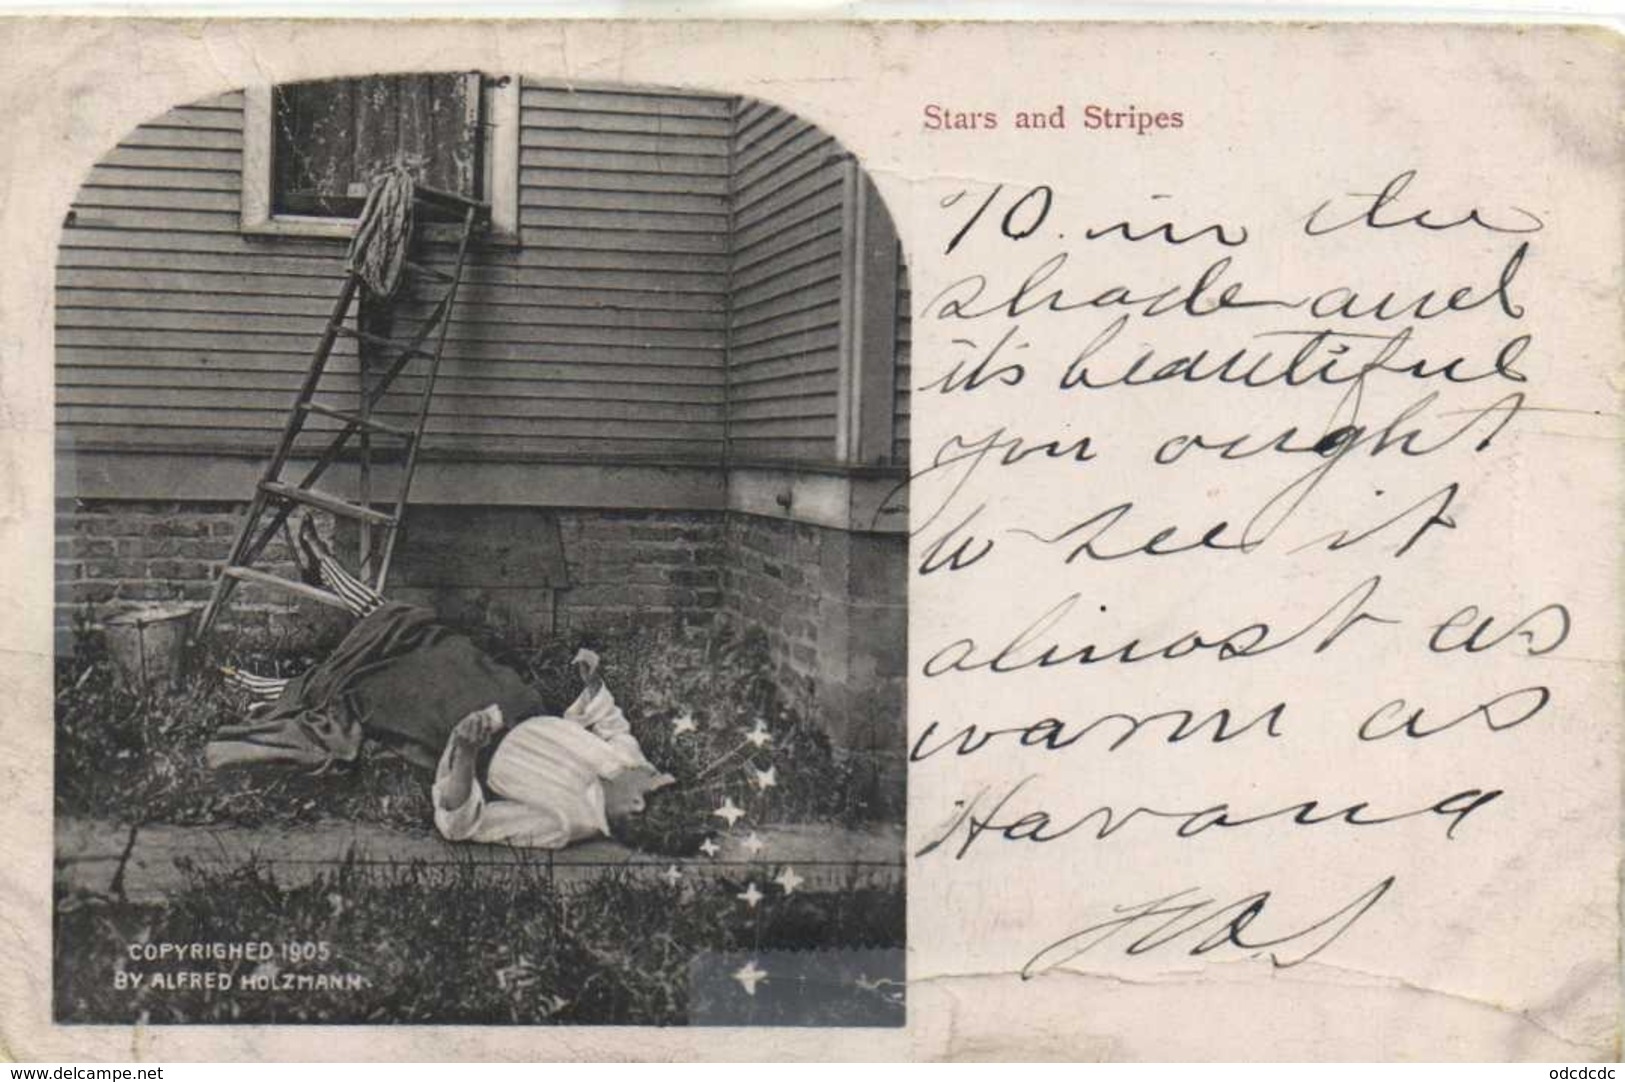 Stars and Stripes
70 in the
shade and
it's beautiful
you ought
to see it
almost as
warm as
Havana
COPYRIGHED 1905.
BY ALFRED HOLZMANN
www.delcampe.net
odcdcdc